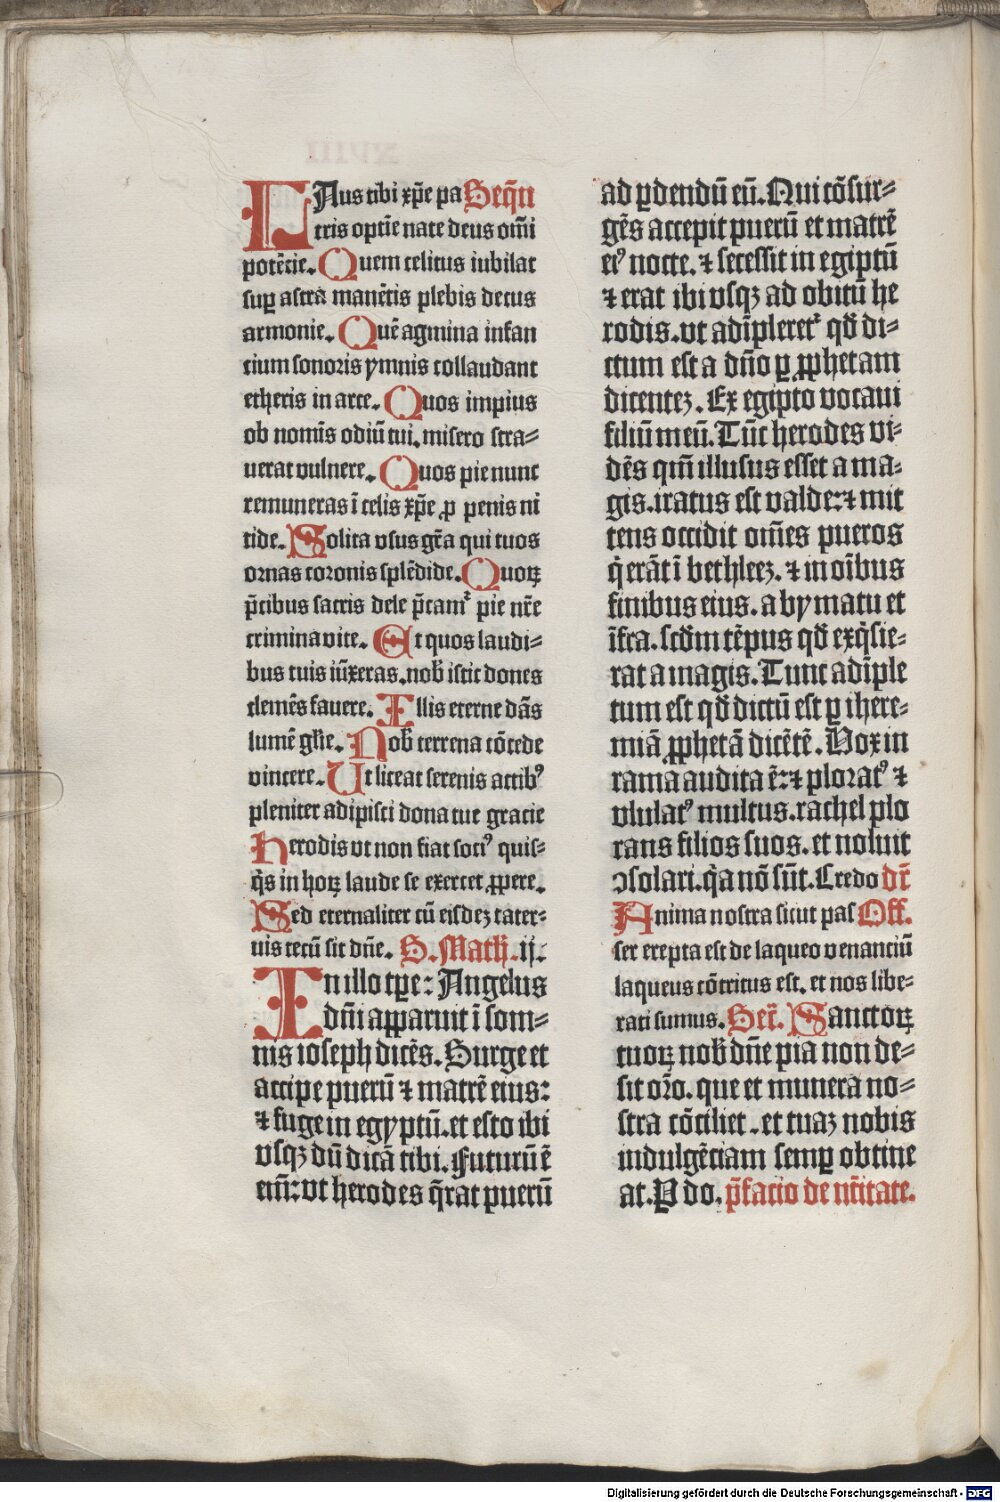 LAus tibi xp̄e pa Seq̄n
tris optīe nate deus om̄i
potēcie. Quem celitus iubilat
sup̱ astra manētis plebis decus
armonie. Quē agmina infan
tium sonoris ymnis collaudant
etheris in arce. Quos impius
ob nomīs odiū tui. misero stra⸗
uerat vulnere. Quos pie nunc
remuneras ī celis xp̄e ꝓ penis ni
tide. Solita vsus gr̄a qui tuos
ornas coronis splēdide. Quoꝝ
p̄cibus sacris dele p̄camꝛ pie nr̄e
crimina vite. Et quos laudi⸗
bus tuis iūxeras. nob̄ istic dones
clemēs fauere. Illis eterne dās
lumē gl̄ie. Nob̄ terrena cōcede
vincere. Ut liceat serenis actibꝰ
pleniter adipisci dona tue gracie
Herodis vt non fiat sociꝰ quis⸗
q̄s in hoꝝ laude se exercet ꝓpere.
Sed eternaliter cū eisdeꝫ cater⸗
uis tecū sit dn̄e. S. Math. ij.
In illo tp̄e: Angelus
dn̄i apparuit ī som⸗
nis ioseph dicēs. Surge et
accipe puerū ⁊ matrē eius:
⁊ fuge in egyptū. et esto ibi
vsqꝫ dū dicā tibi. Futurū ē
enī: vt herodes q̄rat puerū
ad ꝑdendū eū. Qui cōsur⸗
gēs accepit puerū et matrē
eiꝰ nocte. ⁊ secessit in egiptū
⁊ erat ibi vsqꝫ ad obitū he
rodis. vt adīpleretꝛ qd̄ di⸗
ctum est a dn̄o ꝑ ꝓphetam
dicenteꝫ. Ex egipto vocaui
filiū meū. Tūc herodes vi⸗
dēs qm̄ illusus esset a ma⸗
gis. iratus est valde: ⁊ mit
tens occidit om̄es pueros
q̄ erāt ī bethleeꝫ. ⁊ in oībus
finibus eius. a bymatu et
īfra. scd̄m tēpus qd̄ exq̄sie⸗
rat a magis. Tunc adīple
tum est qd̄ dictū est ꝑ ihere⸗
miā ꝓphetā dicētē. Vox in
rama audita ē: ⁊ ploratꝰ ⁊
vlulatꝰ multus. rachel plo
rans filios suos. et noluit
ↄsolari. q̄a nō sūt. Credo dr̄
Anima nostra sicut pas Off.
ser erepta est de laqueo venantiū
laqueus cōtritus est. et nos libe⸗
rati sumus. Secr̄. Sanctoꝝ
tuoꝝ nob̄ dn̄e pia non de⸗
sit orō. que et munera no⸗
stra cōciliet. et tuaꝫ nobis
indulgēciam semꝑ obtine
at. P do. p̄facio de nītate.
Digitalisierung gefördert durch die Deutsche Forschungsgemeinschaft - DFG